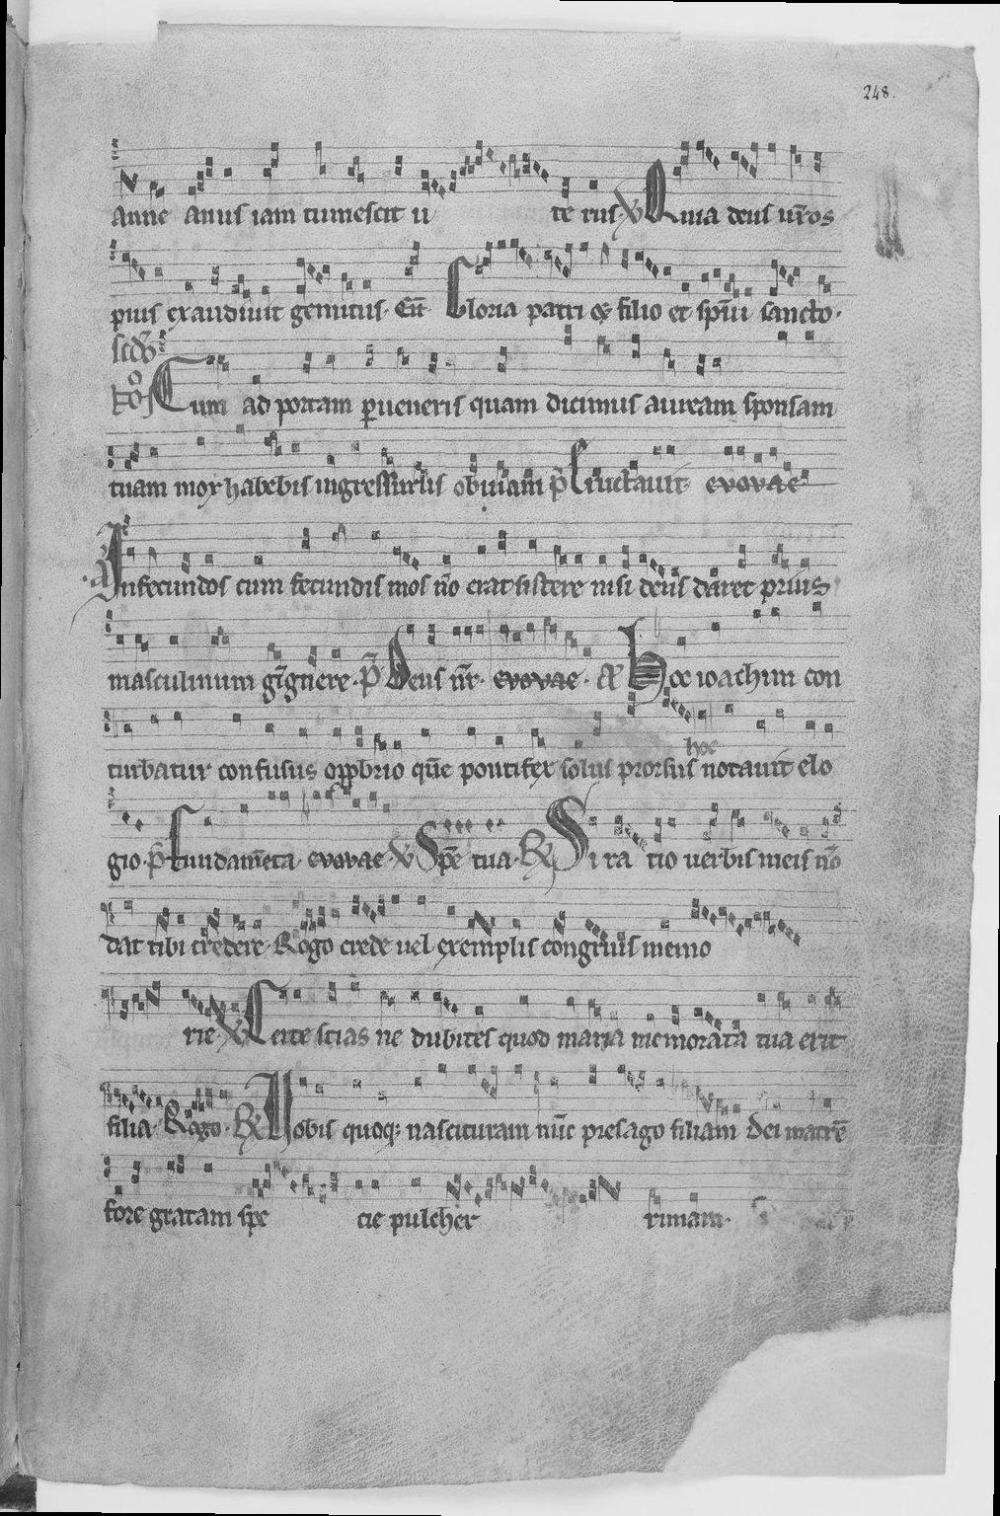 248.
anne anus iam tumescit u te rus. V Quia deus ur̄os
pius exaudiuit gemitus. Eū Gloria patri & filio et sp̄iui sancto.
scd̄o
noc̄ Cum ad portam ꝑueneris quam dicimus auream sponsam
tuam mox habebis ingressurus obuiam p̄ Eructauit evovae
a Infecundos cum fecundis mos nō erat sistere nisi deus daret prius
masculinum gignere. p̄ Deus nr̄. evovae. A Hoc ioachim con
turbatur confusus opp̄brio quē pontifex solus prorsus hoc notauit elo
gio. p̄ fundam̄eta. evovae. V Spē tua. R Si ra tio uerbis meis nō
dat tibi credere. Rogo crede uel exemplis congruis memo
rie. V Certe scias ne dubites quod maria memorata tua erit
filia. Rogo. R Nobis quoq; nascituram nūc presago filiam dei matrē
fore gratam spe cie pulcher rimam.